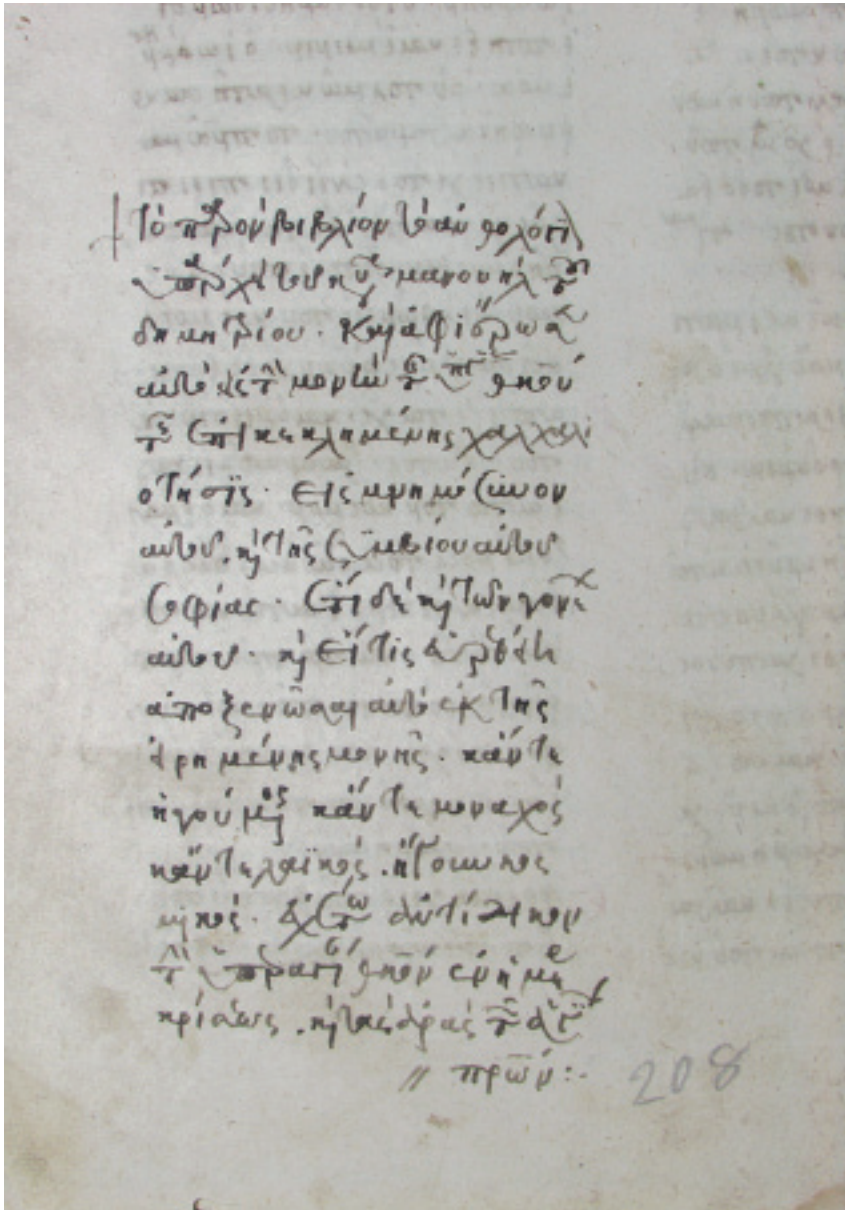 † Τὸ παρὸν βιβλίον τὸ ἀνθολόγι
ὑπάρχει τοῦ κυροῦ μανουὴλ τοῦ
δημητρίου. καὶ ἀφιέρωσα
αὐτὸ εἰς τὴν μονὴν τῆς θκου
τῆς ἐπικεκλημένης χάλκε
οτήσις. εἰς μνημόσυνον
αὐτοῦ, καὶ τῆς συμβίου αὐτοῦ
σοφίας. ἔτι δὲ καὶ τῶν γονέων
αὐτοῦ. καὶ εἴ τις βουληθῆ
ἀποξενῶσαι αὐτὸ ἐκ τῆς
εἰρημένης μονῆς. κἄν τε
ἡγούμενος κἄν τε μοναχὸς
κἄν τε λαϊκός. ἤτω
ἐχέτω ἀντίδικον
τὴν ὑπεραγί θκον ἐν ἡμέ
κρίσεως. καὶ τὰς ἀρὰς τῶν ἁγίων
πρων:·
208